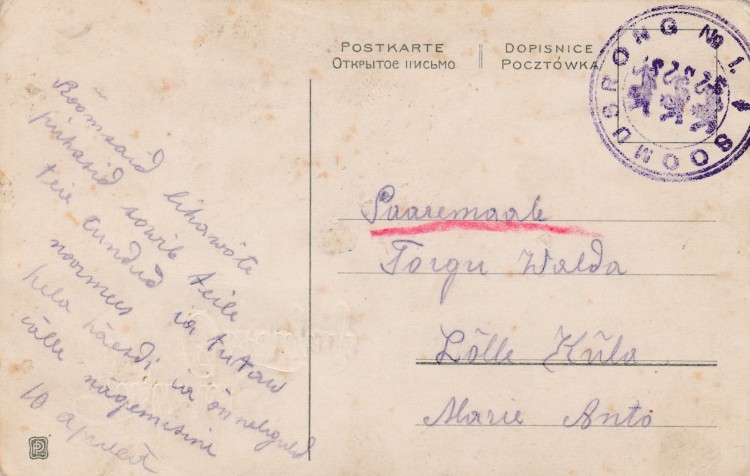 POSTKARTE
ОТКРЫТОЕ ПИСЬМО
DOPISNICE
POCZTÓWKA
SOOMUSRONG № 1.
Rõõmsaid lihawõte
pühasid sowib teile
teie tundud ia tutaw
noormees
hela ia õnneligud
iälle nagemiseni
10 aprill
Saaremaale
Torgu Walda
Lõlle Küla
Marie Anto